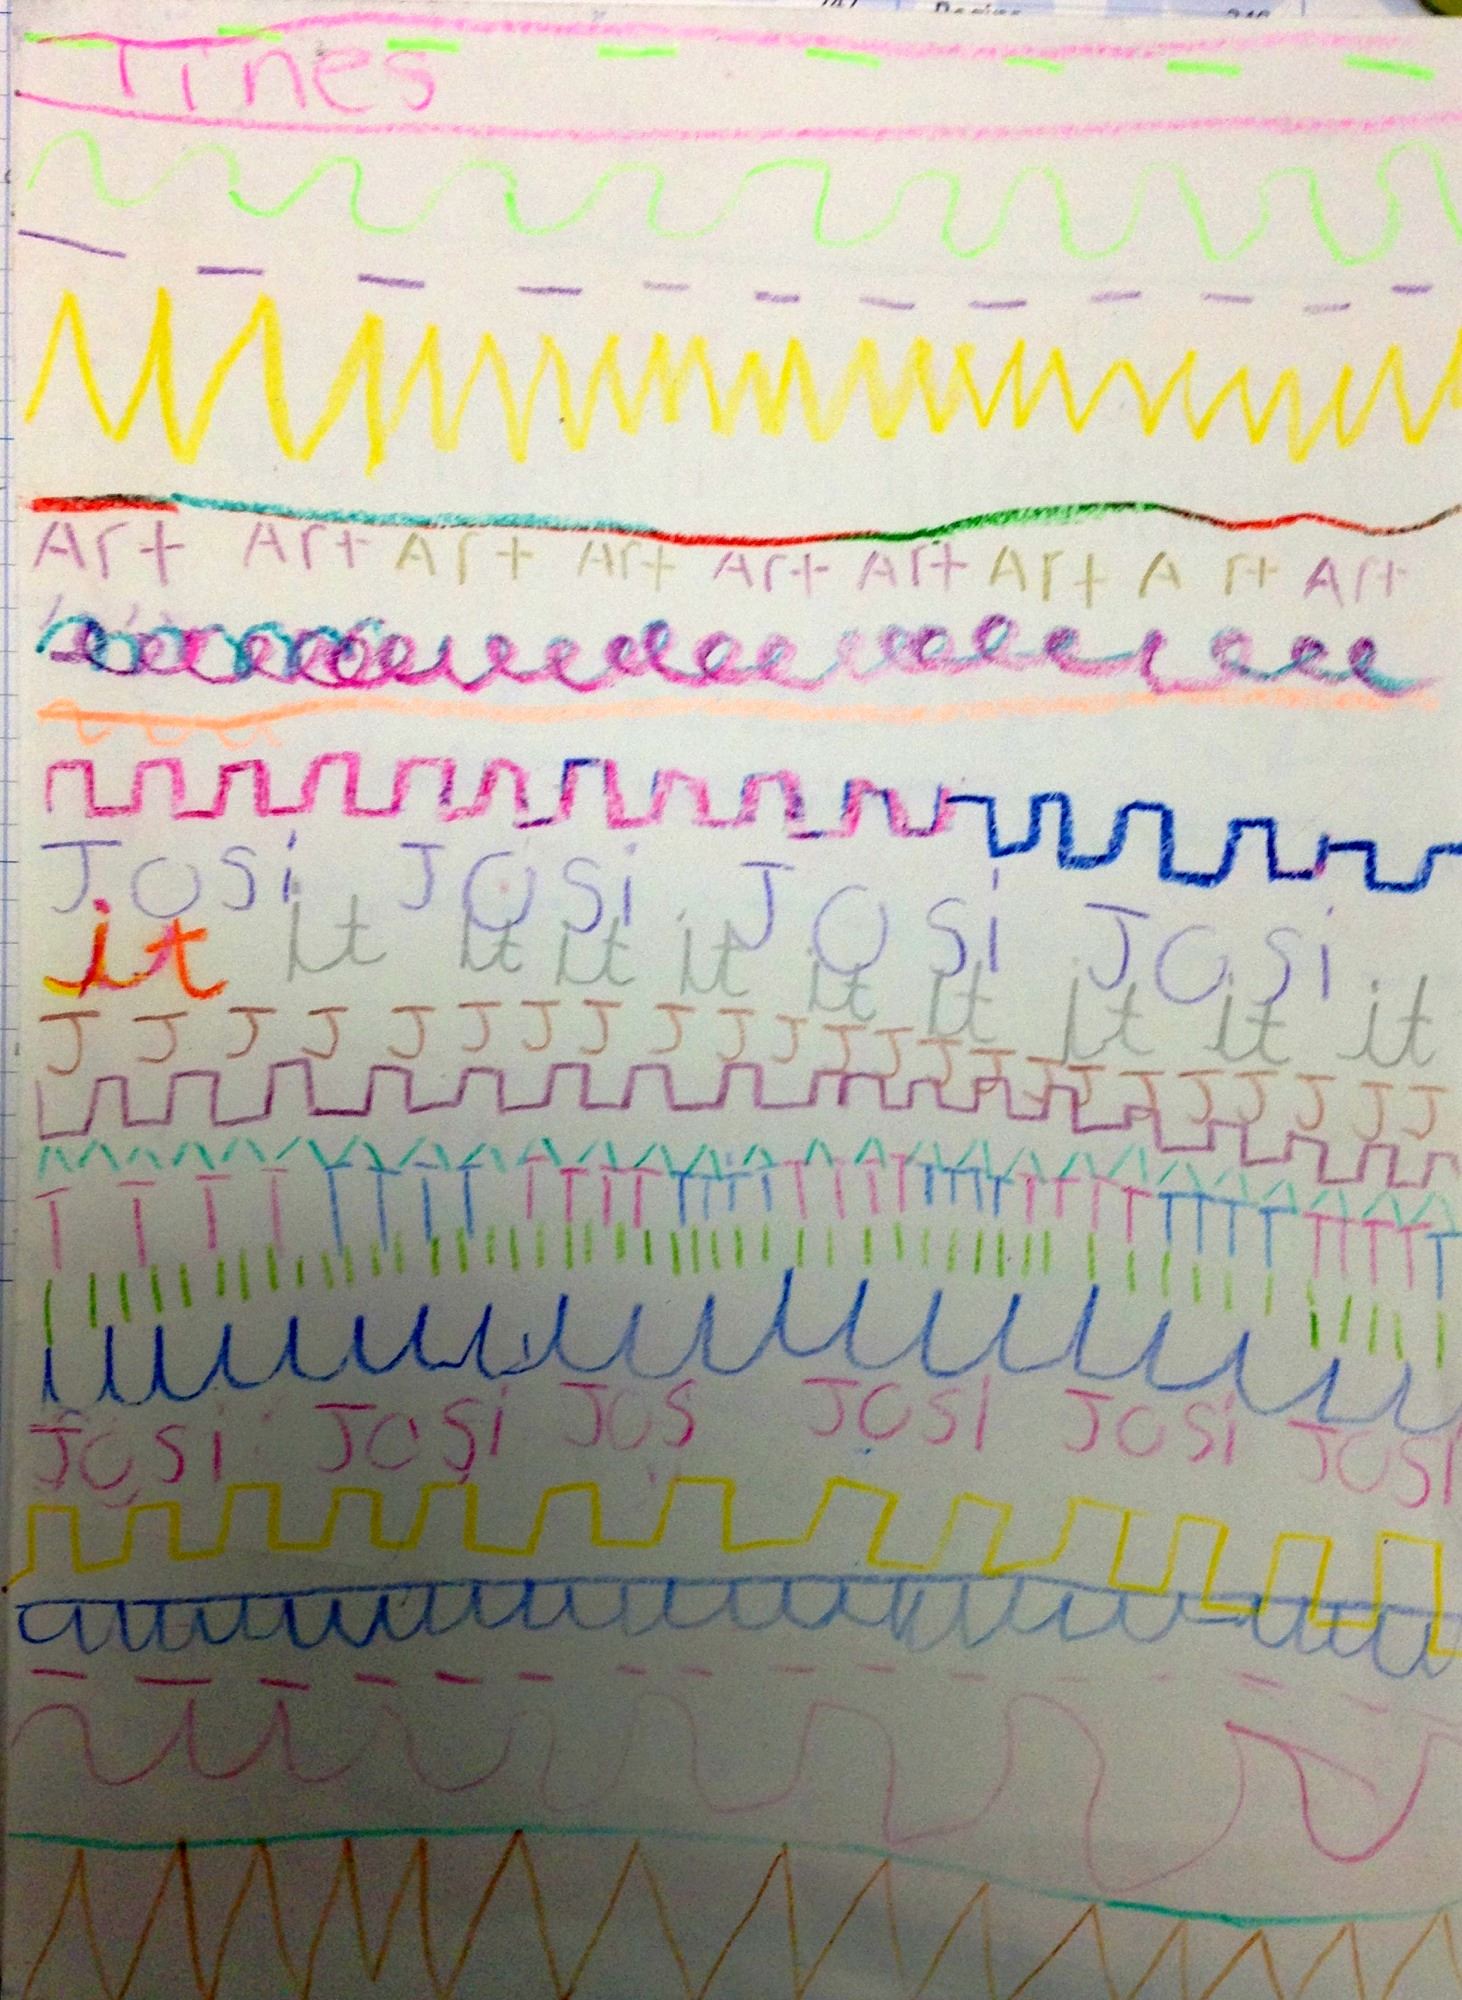 Tines
Art Art Art Art Art Art Art Art Art
JOSi JOSi JOSi JOSi
it it it it it it it it it it
J J J J J J J J J J J J J J J J J J J J J J J
JOSi JOSi JOS JOSI JOSi JOSI